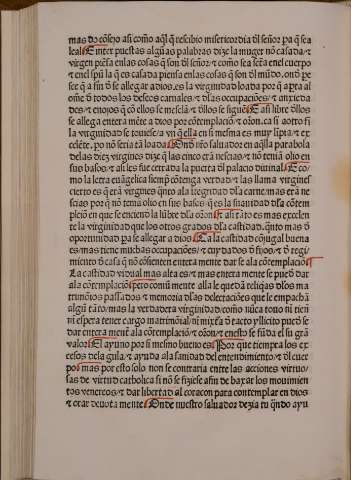 mas do cõsejo asi como aq̃l q̃ rescibio misericordia dl señor pa q̃ sea
leal Enter puestas algũas palabras dize la muger nõ casada ⁊
virgen pẽsa enlas cosas q̃ son dl señor ⁊ como sea sctã enel cuerpo
⁊ enel spũ la q̃ es casada piensa enlas cosas q̃ son dl mũdo.
ser q̃ a fin de se allegar a dios es la virginidad loada por q̃ apta al
omẽ de todos los deseos carnales ⁊ dlas ocupaciões ⁊ anxieda
des ⁊ enojos q̃ cõ ellos se mescla ⁊ dllos se siguẽ E asi libre dllos
se allega entera mẽte a dios por cõtemplaciõ ⁊ oraçõ. ca si a otro fi
la virginidad se touiese avn q̃ ella en si mesma es muy lipia ⁊ ex
celẽte. po nõ seria tã loada Ond nro saluador en aq̃lla parabola
delas diez virgines dize q̃ las cinco erã nescias ⁊ nõ teniã olio en
sus basos ⁊ asi les fue cerrada la puerta dl palacio diuinal. E co
mo la letra euãgelica siempre cõtenga verdad ⁊ las llama virgines
cierto es q̃ erã virgines q̃nto ala integridad dla carne. mas erã ne
scias por q̃ nõ teniã olio en sus basos. q̃ es la suauidad dla cõtem
plaçiõ en que se enciende la lũbre dla oraçõ E asi tãto es mas excelen
te la virginidad que los otros grados dla castidad. q̃nto mas d
oportunidad pa se allegar a dios Ca la castidad cõjugal buena
es mas tiene muchas occupaciões ⁊ cuydados d fijos ⁊ d regi
miento d casa q̃ nõ cõsienten entera mente dar se ala cõtemplaciõ
La castidad vidual mas alta es ⁊ mas entera mente se pued dar
ala cõtemplaciõ pero comũ mente alla le quedã reliqas dlos ma
trimõios pasados ⁊ memoria dlas delectaciões que le empachã
algũ tãto mas la verdadera virginidad como nũca touo ni tien
ni espera tener cargo matrimõial ni mixtã d tacto yllicito pued se
dar entera mẽte ala cõtemplaciõ ⁊ oraçõ ⁊ enesto se fũda el su grã
valor El ayuno por si mesmo bueno es Por que tiempra los ex
cesos dela gula ⁊ ayuda ala sanidad del entendimiento ⁊ dl cuer
po mas por esto solo non se contaria entre las acciones virtuo
sas de virtud catholica si nõ se fiziese afin de baxar los mouimien
tos venereos ⁊ dar libertad al coraçon para contemplar en dios
⁊ orar deuota mente Onde nuestro saluador dezia tu q̃ndo ayu